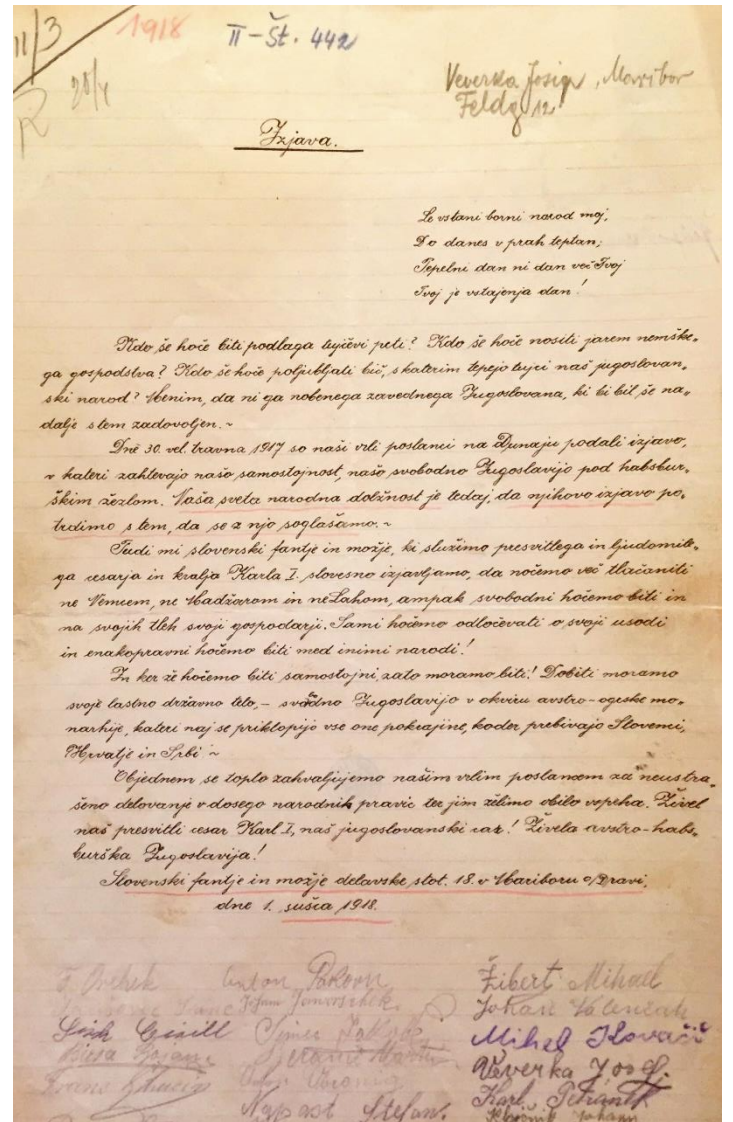 II/3
1918
II - Št. 442
20/4
R
Veverka Josip, Maribor
Feldg 12
Izjava.
Le vstani borni narod moj,
Do danes v prah teptan;
Pepelni dan ni dan več Tvoj
Tvoj je vstajenja dan!
Kdo še hoče biti podlaga tujčevi peti? Kdo še hoče nositi jarem nemške-
ga gospodstva? Kdo še hoče poljubljati bič, s katerim tepejo tujci naš jugoslovan-
ski narod? Menim, da ni ga nobenega zavednega Jugoslovana, ki bi bil še na-
dalje s tem zadovoljen. ~
Dné 30. vel. travna 1917 so naši vrli poslanci na Dunaju podali izjavo,
v kateri zahtevajo našo samostojnost, našo svobodno Jugoslavijo pod habsbur-
škim žezlom. Naša sveta narodna dolžnost je tedaj, da njihovo izjavo po-
trdimo s tem, da se z njo soglašamo. ~
Tudi mi slovenski fantje in možje, ki služimo presvitlega in ljudomile-
ga cesarja in kralja Karla I. slovesno izjavljamo, da nočemo več tlačaniti
ne Nemcem, ne Madžarom in ne Lahom, ampak svobodni hočemo biti in
na svojih tleh svoji gospodarji. Sami hočemo odločevati o svoji usodi
in enakopravni hočemo biti med inimi narodi!
In ker že hočemo biti samostojni, zato moramo biti! Dobiti moramo
svoje lastno državno telo, - svobodno Jugoslavijo v okviru avstro-ogeske mo-
narhije, kateri naj se priklopijo vse one pokrajine, koder prebivajo Slovenci,
Hrvatje in Srbi ~
Objednem se toplo zahvaljujemo našim vrlim poslancem za neustra-
šeno delovanje v dosego narodnih pravic ter jim želimo obilo vspeha. Živel
naš presvitli cesar Karl I, naš jugoslovanski car! Živela avstro-habs-
burška Jugoslavija!
Slovenski fantje in možje delavske stot. 18. v Mariboru o/Dravi,
dne 1. sušca 1918.
Anton
Žibert Mihael
Johan
Mihel Kovačič
Veverka Josef.
Napast Štefan.
Karl Petranek
Johann